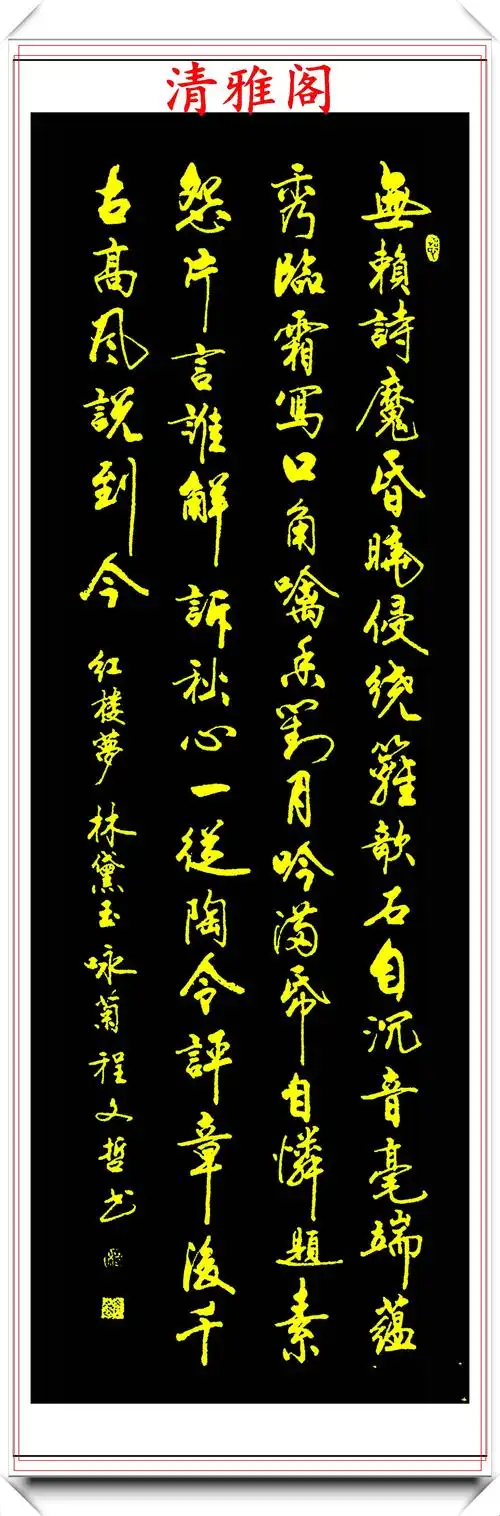 清雅阁
無賴詩魔昏曉侵繞籬欹石自沉音毫端蘊
秀臨霜寫口角噙香對月吟滿帋自憐題素
怨片言誰解訴秋心一從陶令評章後千
古高風說到今 红楼夢林黛玉咏菊程文哲书